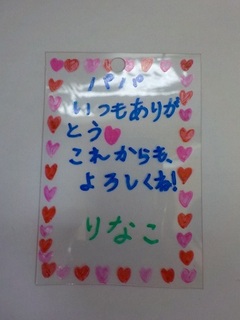 パパ
いつもありが
とう♥
これからも、
よろしくね!
りなこ